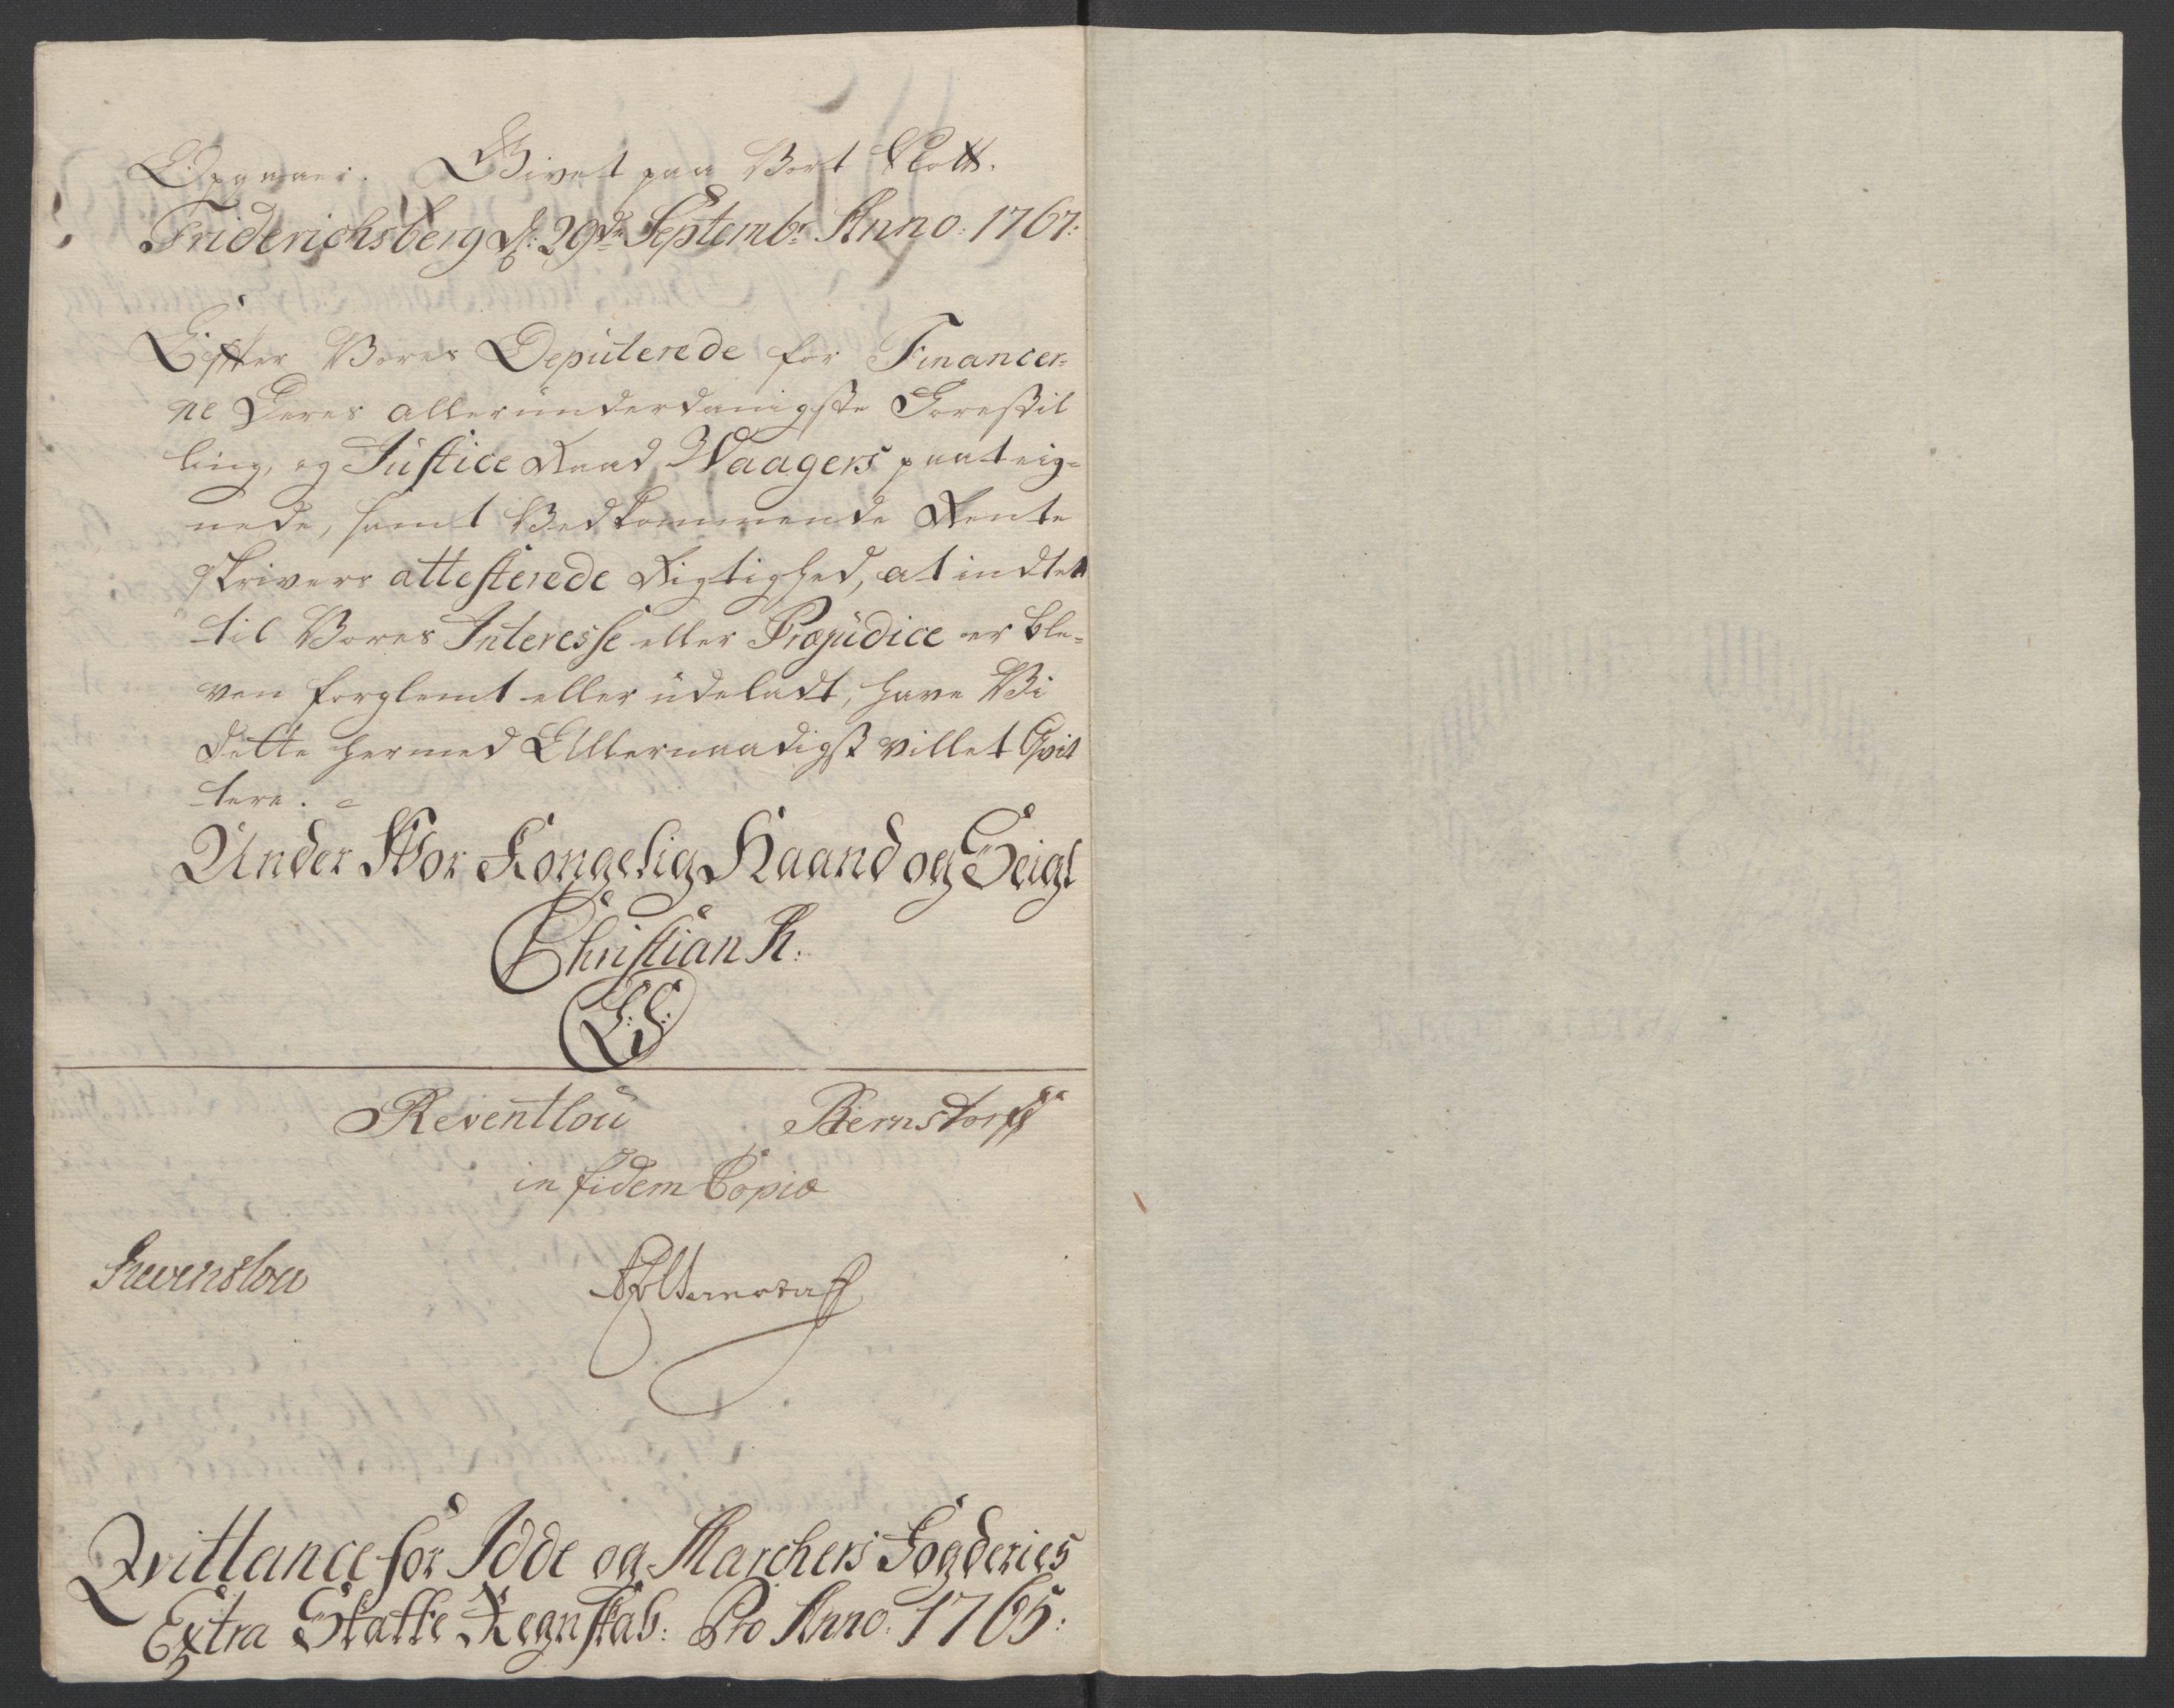 Opgaaer. Givet paa Vort Slott.
Friderichsberg d: 29de Septembr Anno: 1767:
Effter Vores Deputerede for Financer-
ne Deres allerunderdanigste Forestil
ling, og Justice Raad Waagers paateig-
nede, samt Vedkommende Rente
skrivers attesterede Rigtighed, at indtet
til Vores Interesse eller Præjudice er ble-
ven forglemt eller udeladt, have Vi
dette hermed Allernaadigst villet Qvit
tere.
Under Vor Kongelig Haand og Seigl
Christian R.
L:S:
Reventlou Bernstorff
in fidem Copiæ
Qvittance for Idde og Marchers Fogderies
Extra Skatte Regnskab: Pro Anno: 1765: